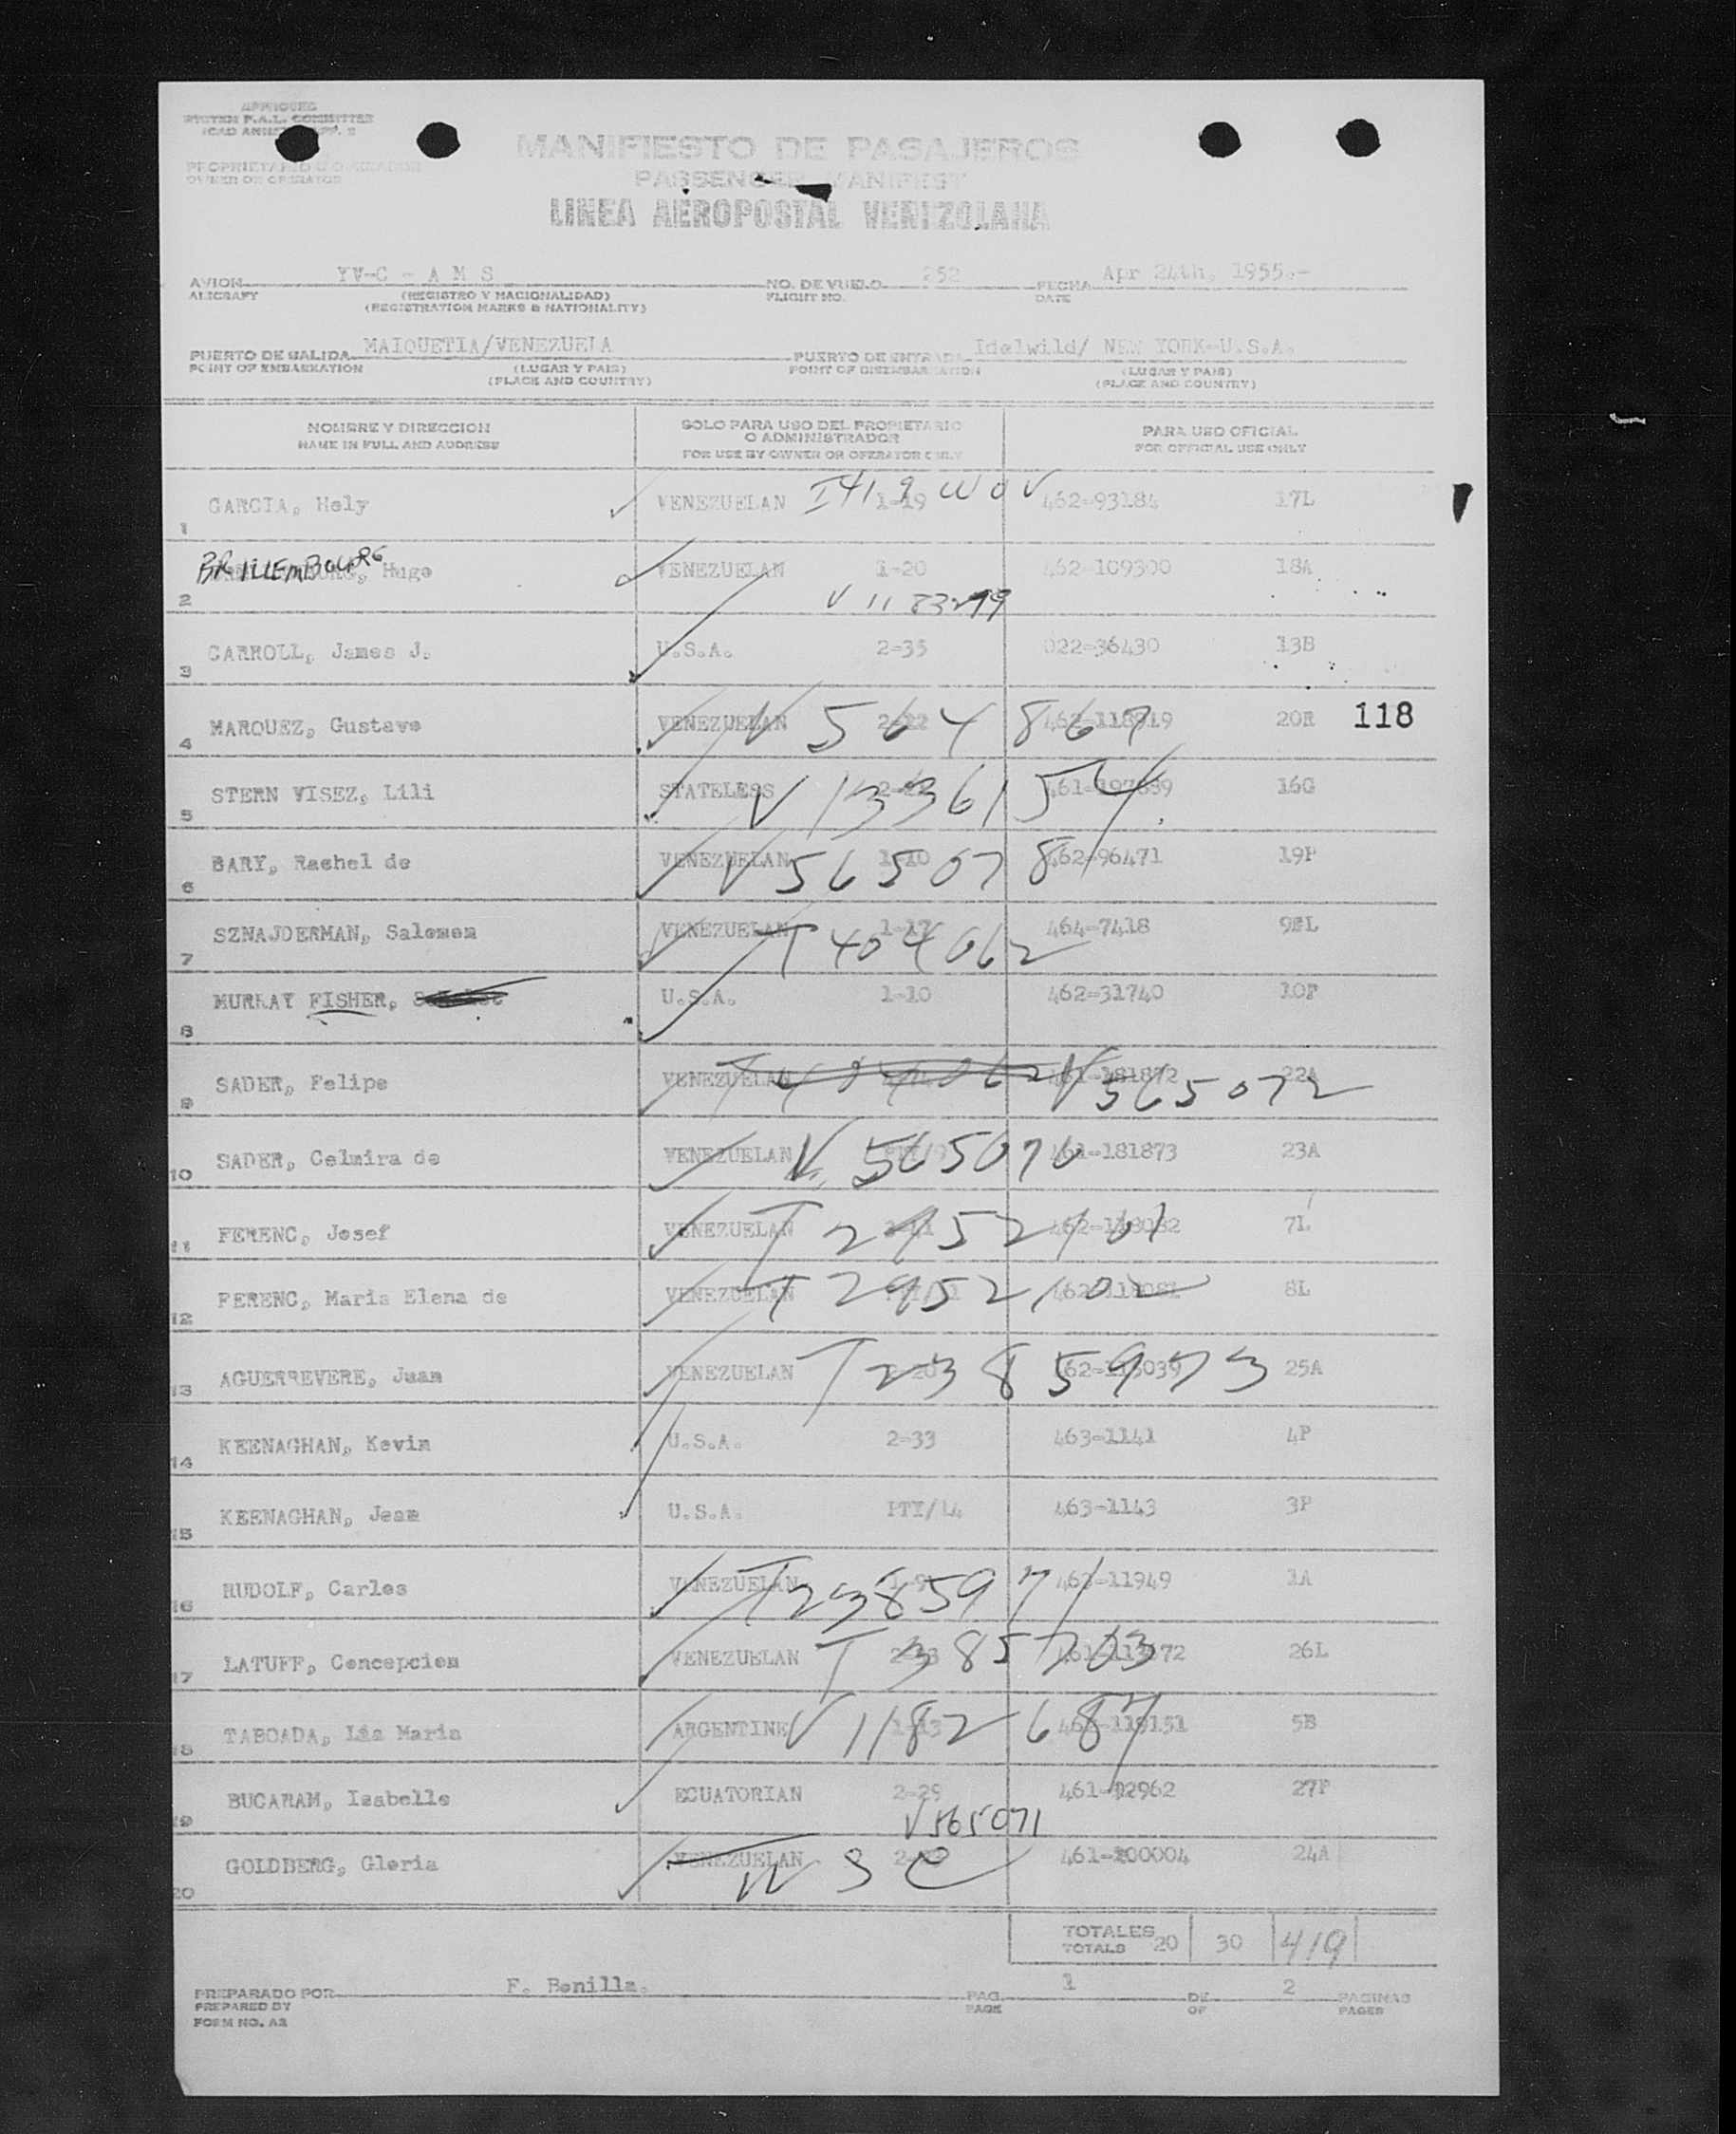 MANIFIESTO DE PASAJEROS
PASSENGER MANIFEST
PROPRIETARIO O OPERADOR
OWNER OR OPERATOR
LINEA AEROPOSTAL VENEZOLANA
AVION YV-C - A M S NO. DE VUELO 252 FECHA Apr 24th, 1955.-
(REGISTRO Y NACIONALIDAD) FLIGHT NO. DATE
(REGISTRATION MARKS & NATIONALITY)
PUERTO DE SALIDA MAIQUETIA/VENEZUELA PUERTO DE ENTRADA Idelwild/ NEW YORK-U.S.A.
POINT OF EMBARKATION (LUGAR Y PAIS) POINT OF DISEMBARKATION (LUGAR Y PAIS)
(PLACE AND COUNTRY) (PLACE AND COUNTRY)
NOMBRE Y DIRECCION SOLO PARA USO DEL PROPIETARIO PARA USO OFICIAL
NAME IN FULL AND ADDRESS O ADMINISTRADOR FOR OFFICIAL USE ONLY
FOR USE BY OWNER OR OPERATOR ONLY
1 GARCIA, Hely VENEZUELAN 1-19 462-93184 17L
2 BRILLEMBOURG, Hugo VENEZUELAN 1-20 462-109300 18A
V 1183299
3 CARROLL, James J. U.S.A. 2-35 022-36430 13B
4 MARQUEZ, Gustavo VENEZUELAN V 564867 20R 118
5 STERN VISEZ, Lili STATELESS V 1336154 16G
6 BARY, Rachel de VENEZUELAN 1-10 V 565078 462-96471 19P
7 SZNAJDERMAN, Salomon VENEZUELAN T 404062 464-7418
8 MURRAY FISHER, U.S.A. 1-10 462-31740 10F
9 SADER, Felipe VENEZUELAN T 404062 V 565072 461-181872 22A
10 SADER, Celmira de VENEZUELAN V 565070 461-181873 23A
11 FERENC, Josef VENEZUELAN T 2952101 7L
12 FERENC, Maria Elena de VENEZUELAN T 2952102 8L
13 AGUERREVERE, Juan VENEZUELAN T 2385973 25A
14 KEENAGHAN, Kevin U.S.A. 2-33 463-1141 4P
15 KEENAGHAN, Jean U.S.A. 463-1143 3P
16 RUDOLF, Carlos VENEZUELAN T 2385971 1A
17 LATUFF, Concepcion VENEZUELAN T 385703 26L
18 TABOADA, Lia Maria ARGENTINE V 1182687 5B
19 BUCARAM, Isabelle ECUATORIAN 2-29 461-92962 27F
V 565071
20 GOLDBERG, Gloria VENEZUELAN 461-200004 24A
TOTALES 20 30 419
TOTALS
PREPARADO POR F. Bonilla. PAG. 1 DE 2 PAGINAS
PREPARED BY PAGE OF PAGES
FORM NO. A2